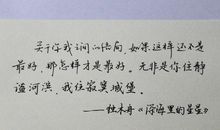 关于你我之间的结局，如果这样还不是
最好，那怎样才是最好。无非是你住静
谧河滨，我住寂寞城堡。
——独木舟《深海里的星星》